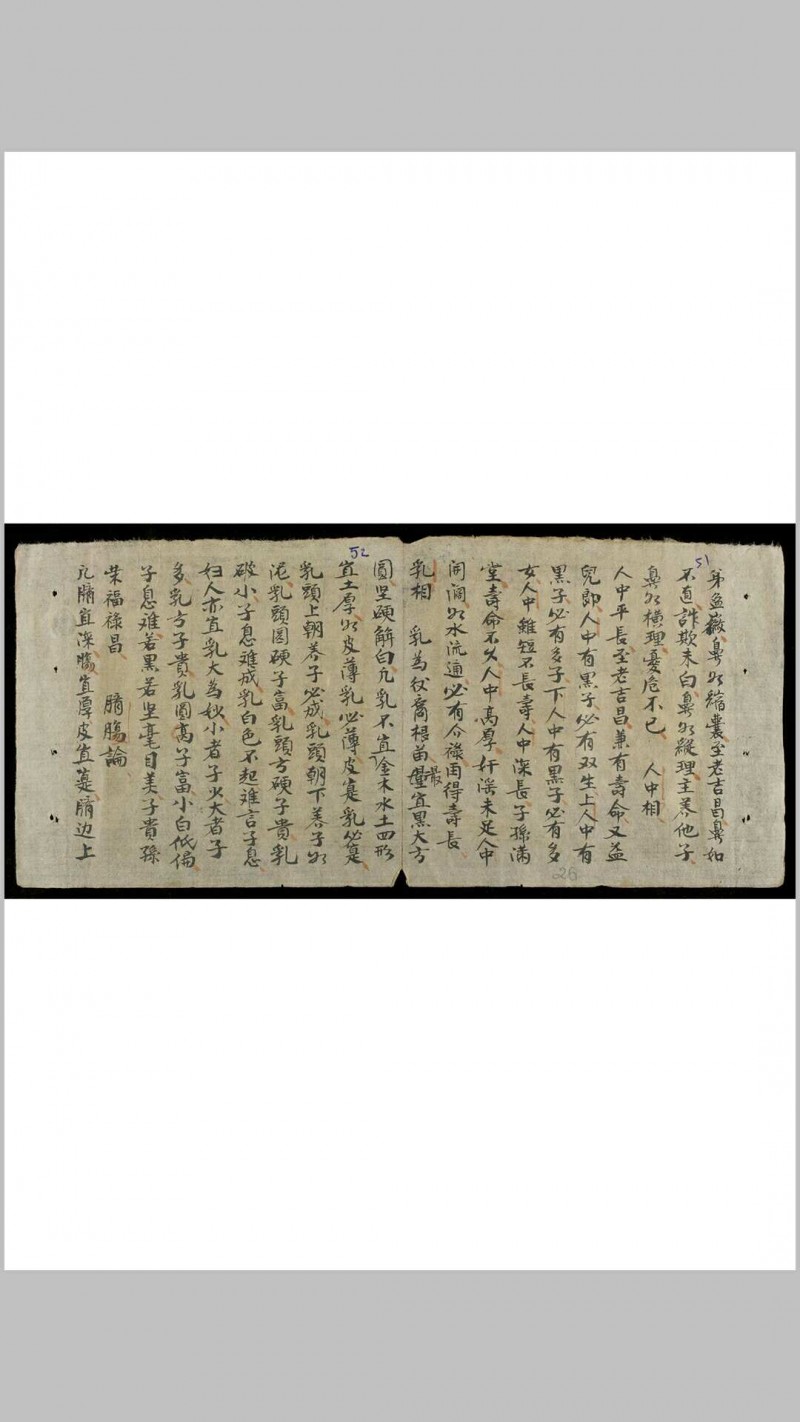 51
弟益嚴鼻如縮囊至老吉昌鼻如
不直詐欺未白鼻如縱理主養他子
鼻如橫理憂危不已 人中相
人中平長至老吉昌兼有壽命又益
兒即人中有黑子必有双生上人中有
黑子必有多子下人中有黑子必有多
女人中雖短不長壽人中深長子孫滿
堂壽命不久人中高厚奸滛未足人中
闊如水流通必有介祿田得壽長
乳相 乳為後裔根苗最宜黑大方
52
圓坚硬解曰凡乳不宜金木水土四形
宜土厚如皮薄乳必薄皮寔乳必寔
乳頭上朝养子必成乳頭朝下養子如
泥乳頭圓硬子富乳頭方硬子貴乳
破小子息难成乳白色不起难言子息
妇人亦宜乳大為妙小者子少大者子
多乳方子貴乳圓高子富小白低偏
子息难若黑若坚毫目美子貴孫
荣福祿昌 臍腸論
凡臍宜深腸宜厚皮宜寔臍边上
26